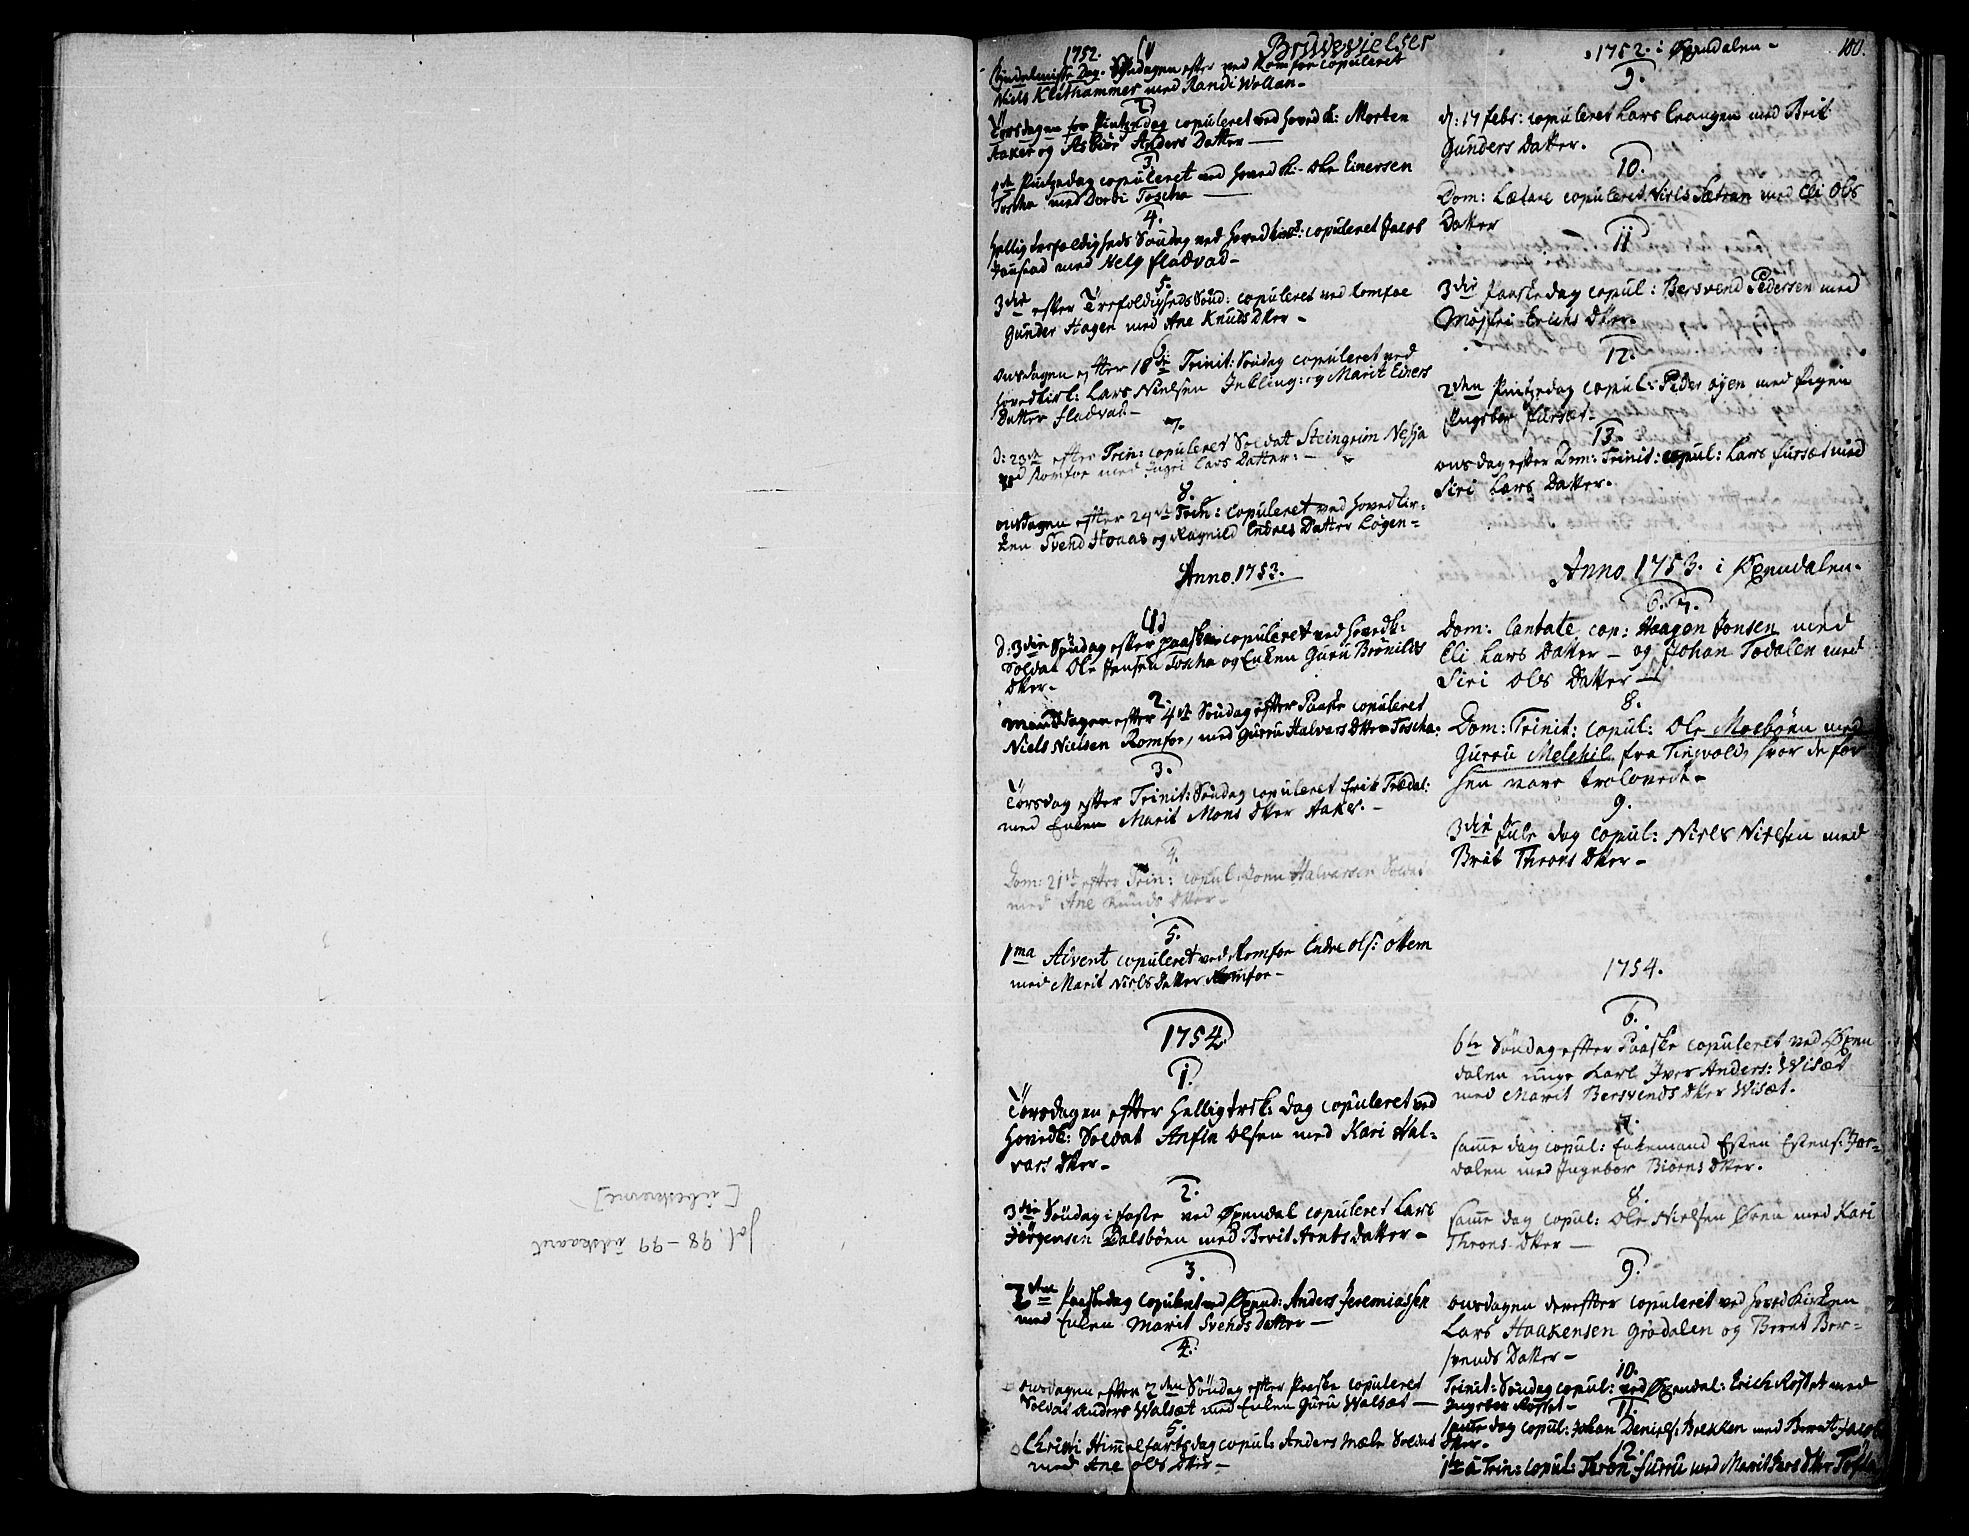 Brudevielser
1752. (1)
Kyndelmisse Dag. Søndagen efter ved Romfoe copuleret
Niels Klethammer med Randi Wollan-
2
Torsdagen før Pintzedag copuleret ved Hoved k: Morten
Aaker og Asbiør Anders Datter —
3
Pintzedag copuleret ved Hoved k:- Ole Einersen
Toscha med Dordi Toscha —
4.
Hellig trefoldigheds Søndag ved Hovedkirk: copuleret Jacob
med Helg Fladvad-
5.
3die efter Trefoldigheds Sønd: copuleret ved Romfoe
Gunder Hagen med Ane Knuds Dtter-
6
Onsdagen efter 18de Trinit: Søndag copuleret ved
Hovedkirk: Lars Nielsen Jnkling: og Marit Einers
Datter Fladvad-
7.
D: 23de efter Trin: copuleret Soldatt Steingrim Nessja
ved Romfoe med Jngri Lars Datter:-
8.
Onsdagen efter 24de Trin: copuleret ved Hovedkir-
ken Svend Hoaas og Ragnild Endres Datter Løgen-
Anno 1753.
(1)
D: 3die Søndag efter paaske copuleret ved Hovedk:
Soldat Ole Jensen Toscha og Enken Guru Brønilds
Dtter-
2
Mandagen efter 4de Søndag efter Paaske copuleret
Niels Nielsen Romfoe, med Gurru Halvars Dtter Toscha.
3.
Torsdag efter Trinit: Søndag copuleret Erik Trædal:
med Enken Marit Mons Dtter Aaker.-
4.
Dom: 21de efter Trin: copul: Joen Halvarsen Soldat
med Ane Knuds Dtter-
5.
1ma Advent copuleret ved Romfoe Endre Ols: Ottem
med Marit Niels Datter Romfoe-
1754
1.
Torsdagen efter Hellig trek: dag copuleret ved
Hovedk: Soldat Anfin Olsen med Kari Hal-
vars Dtter-
2.
3die Søndag i faste ved Øxendal copuleret Lars
Jørgensen Dalsbøen med Berit Arnts Datter-
3.
2den Paaskedag copuleret ved Øxend: Anders Jeremiassen
med Enken Marit Svends Datter —
4.
Onsdagen efter 2den Søndag efter Paaske copuleret
Soldat Anders Walsæt med Enken Guru Walsæt —
5.
Christi Himmelfartsdag copul: Anders Mæle Soldat
med Ane Ols Dtter-
1752. i Øxendalen- 100.
9.
D: 17 febr: copuleret Lars Crangen med Brit
Gunders Datter.
10.
Dom: Lætare copuleret Niels Sætran med Eli Ols
Datter
11
3die Paaskedag copul: Bersvend Pedersen med
Møifri Erichs Dtter.
12.
2den Pintzedag copul: Peder Øyen med Pigen
Jngebor Fursæt-
13.
Onsdag efter Dom: Trinit: copul: Lars Fursæt med
Siri Lars Datter.
Anno 1753. i Øxendalen.
6. 7.
Dom: Cantate cop: Haagen Jonsen med
Eli Lars Datter - og Johan Todalen med
Siri Ols Datter —
8.
Dom: Trinit: copul: Ole Moebøen med
Gurru Melchil fra Tingvold, hvor de før
hen vare trolovede-
9.
3die Jule dag copul: Niels Nielsen med
Brit Throns Dtter-
1754.
6.
6te Søndag efter Paaske copuleret ved Øxen
dalen unge Karl Jver Anders: Wisæt
med Marit Bersvends Dtter Wisæt.
7.
samme dag copul: Enkemand Esten Estens: Jor-
dalen med Jngebor Biørns Dtter.
8.
samme dag copul: Ole Nielsen Øren med Kari
Throns Dtter —
9.
Onsdagen derefter copuleret ved Hoved Kirken
Lars Haakensen Grødalen og Beret Ber-
svends Datter-
10.
Trinit: Søndag copul: ved Øxendal: Erich Rostet med
Jngebor Rostet-
11.
samme dag copul: Johan Deniels: Brekken med Beret Jacobs
Dtter-
12.
1te á Trin: copul: Thron Furru med Marit Dtter
fol. 98-99 udskaaret
[ubeskrevne]